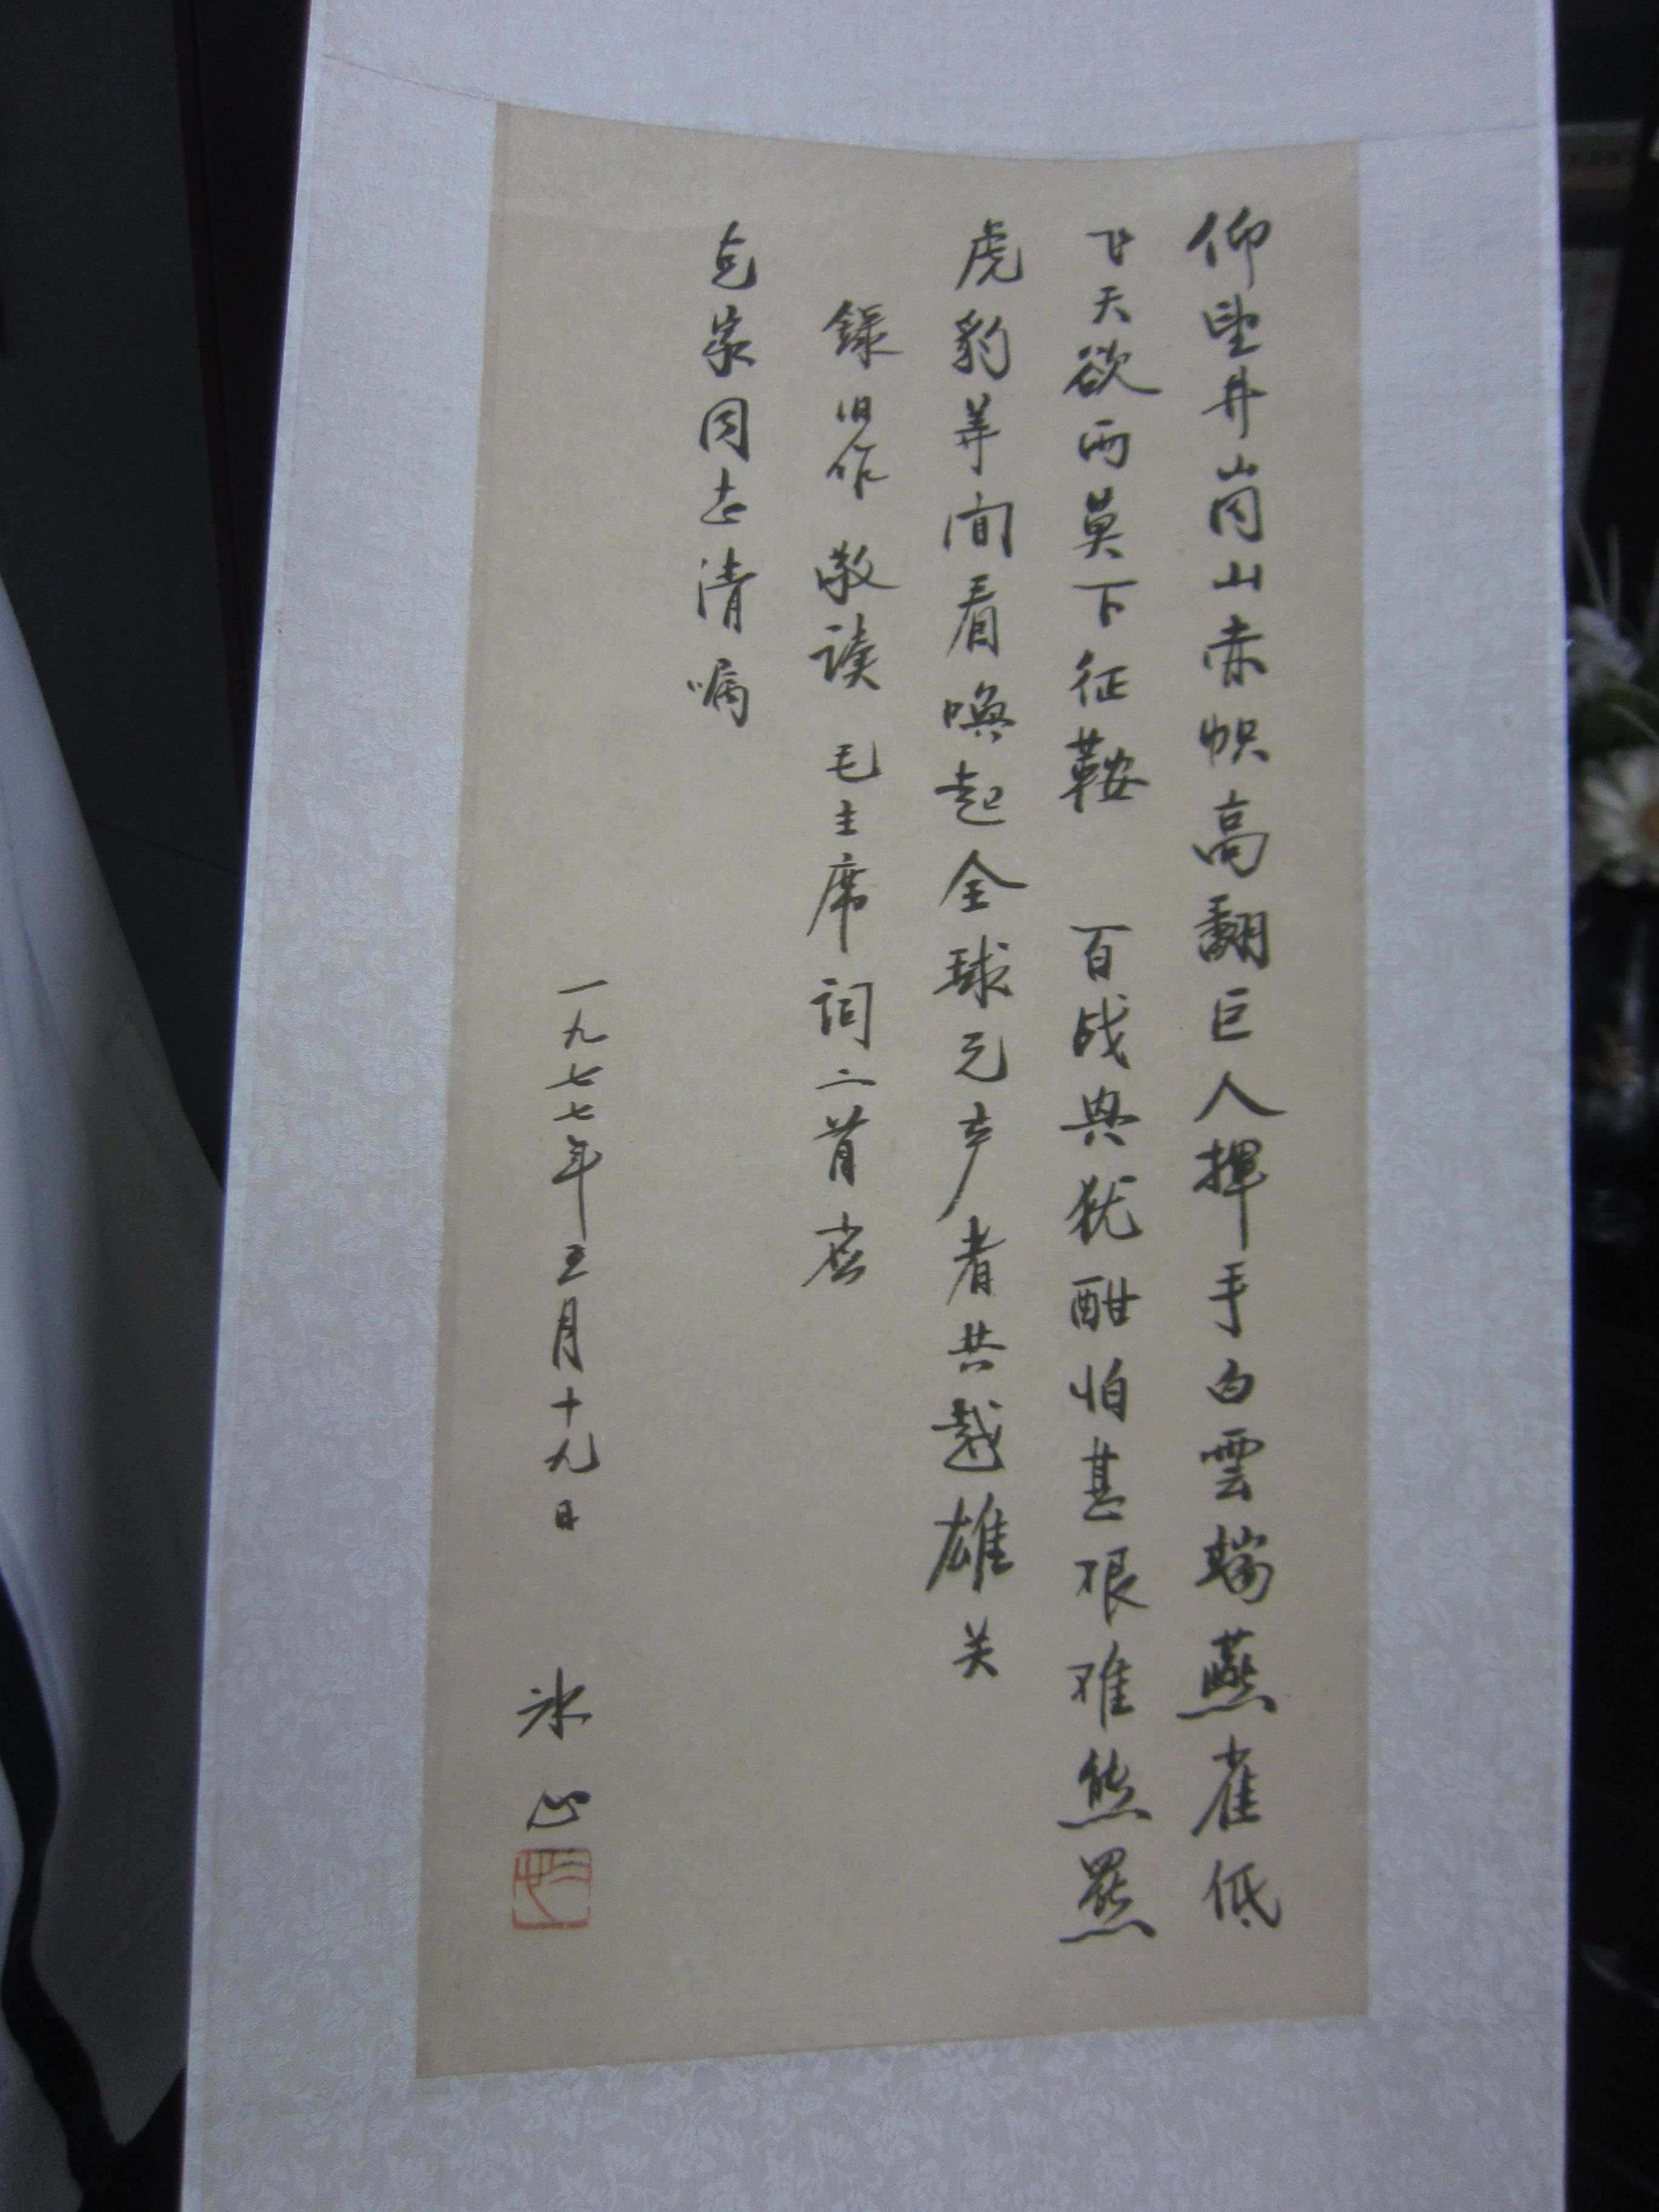 仰望井岗山赤帜高翻巨人挥手白雲端燕雀低
飞天欲雨莫下征鞍 百战兴犹酣怕甚艰难熊罴
虎豹等闲看唤起全球无产者共越雄关
录旧作敬读 毛主席词二首
克家同志清嘱
一九七七年五月十九日 冰心